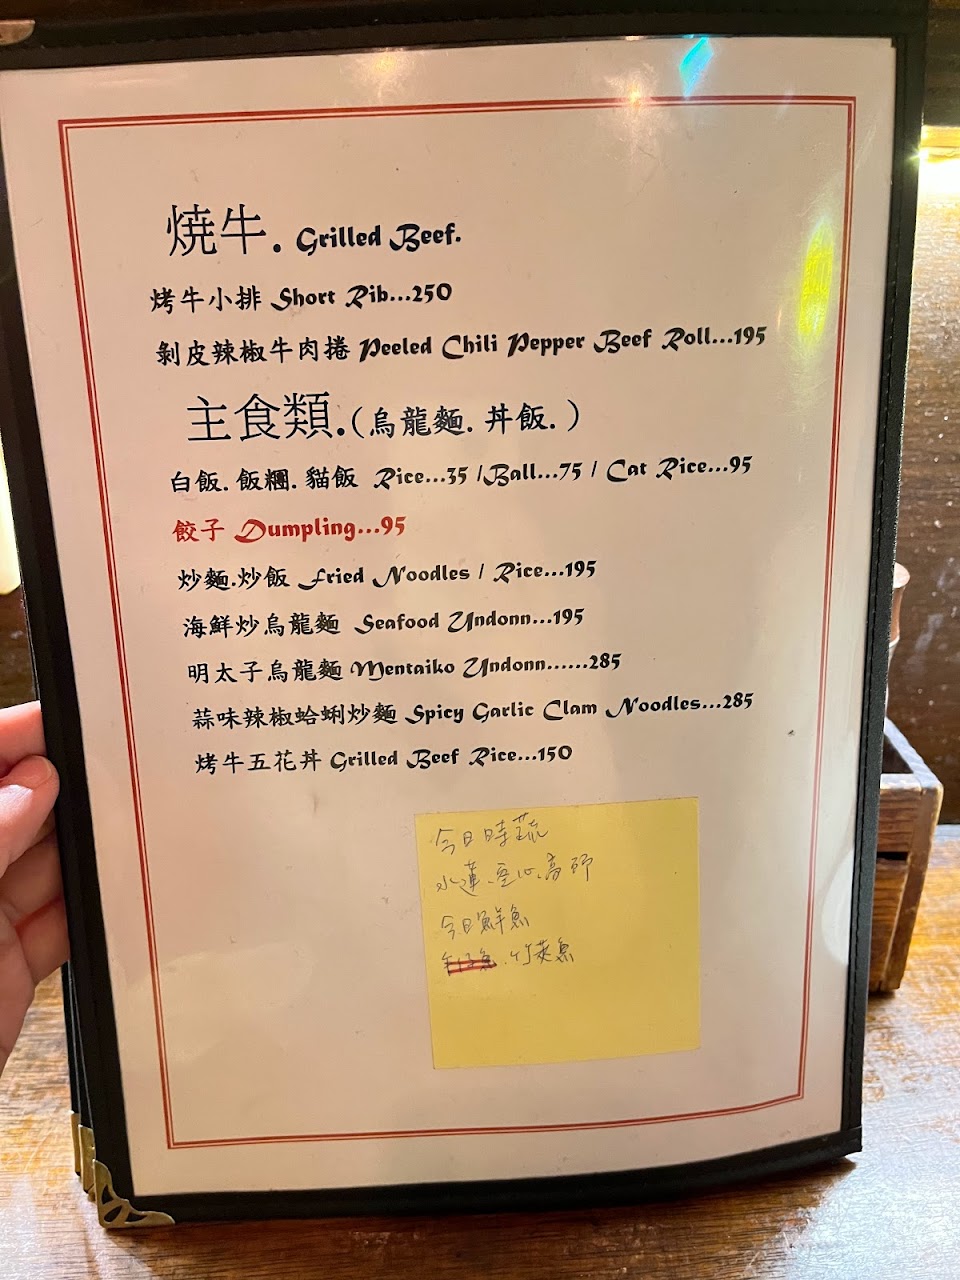 燒牛. Grilled Beef.
烤牛小排 Short Rib...250
剝皮辣椒牛肉捲 Peeled Chili Pepper Beef Roll...195
主食類.(烏龍麵. 丼飯. )
白飯. 飯糰. 貓飯 Rice...35 /Ball...75 / Cat Rice...95
餃子 Dumpling...95
炒麵.炒飯 Fried Noodles / Rice...195
海鮮炒烏龍麵 Seafood Undonn...195
明太子烏龍麵 Mentaiko Undonn......285
蒜味辣椒蛤蜊炒麵 Spicy Garlic Clam Noodles...285
烤牛五花丼 Grilled Beef Rice...150
今日時蔬
水蓮、空心、高
今日鮮魚
竹筴魚